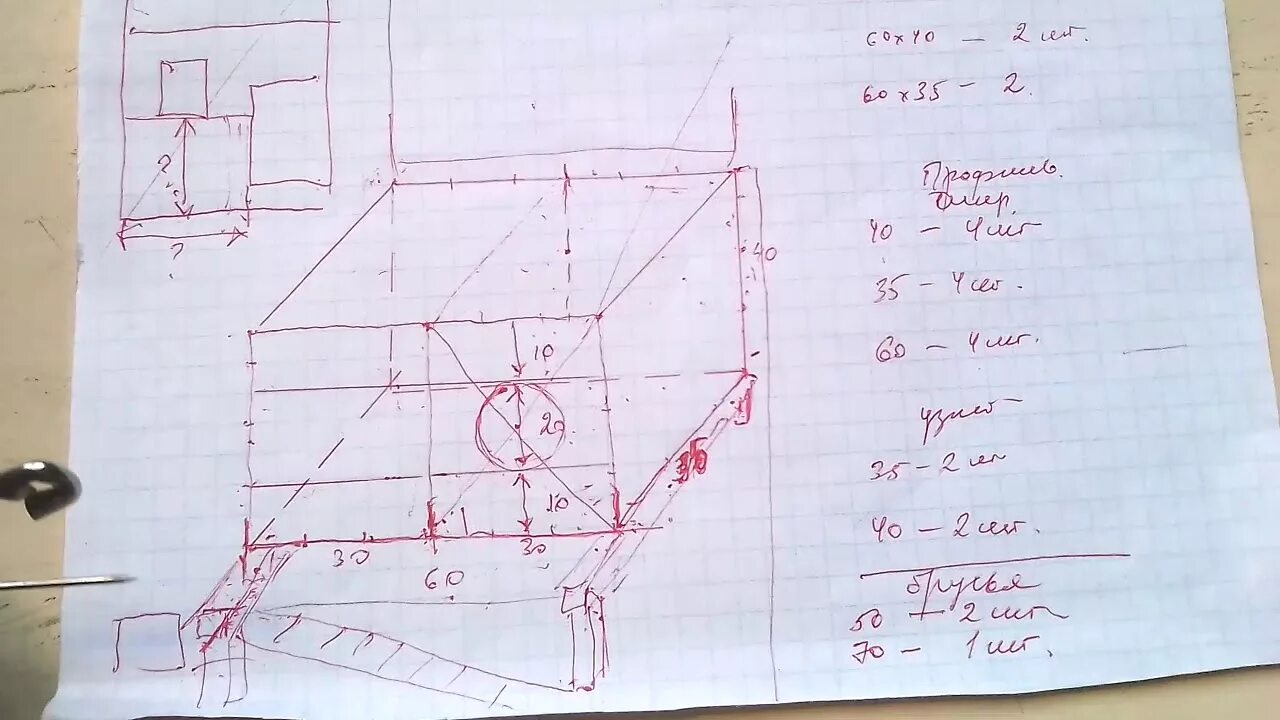 60x40 - 2 шт.
60x35 - 2.
?
?
40
10
20
10
35
30
30
60
40 - 4 шт
35 - 4 шт.
60 - 4 шт.
35 - 2 шт
40 - 2 шт.
брусья
50 - 2 шт
70 - 1 шт.